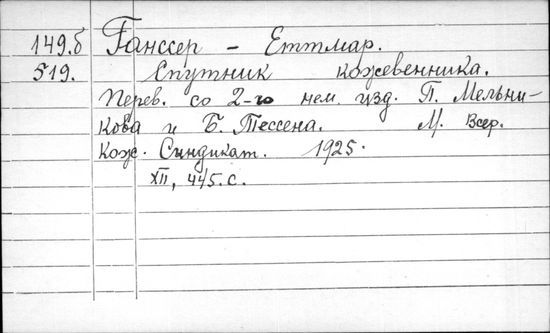 149.б Ганссер - Еттмар.
519. Спутник кожевенника.
Перев. со 2-го нем. изд. П. Мельни-
кова и Б. Тессена. М. Всер.
Кож. Синдикат. 1925.
XII, 445.с.